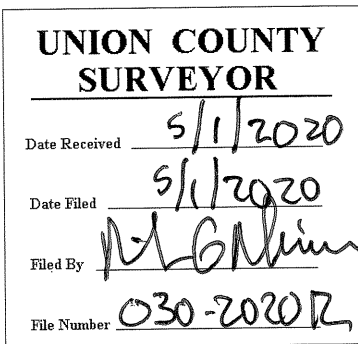 UNION COUNTY
SURVEYOR
Date Received 5/1/2020
Date Filed 5/1/2020
Filed By
File Number 030-2020R